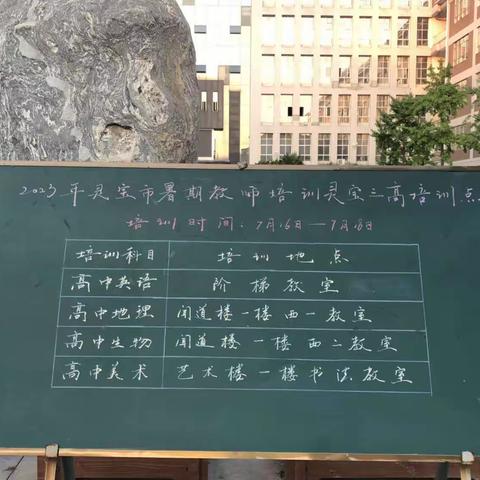 2023年灵宝市暑期教师培训灵宝三高培训点
培训时间:7月16日—7月18日
培训科目 培训地点
高中英语 阶梯教室
高中地理 闻道楼一楼西一教室
高中生物 闻道楼一楼西二教室
高中美术 艺术楼一楼书法教室